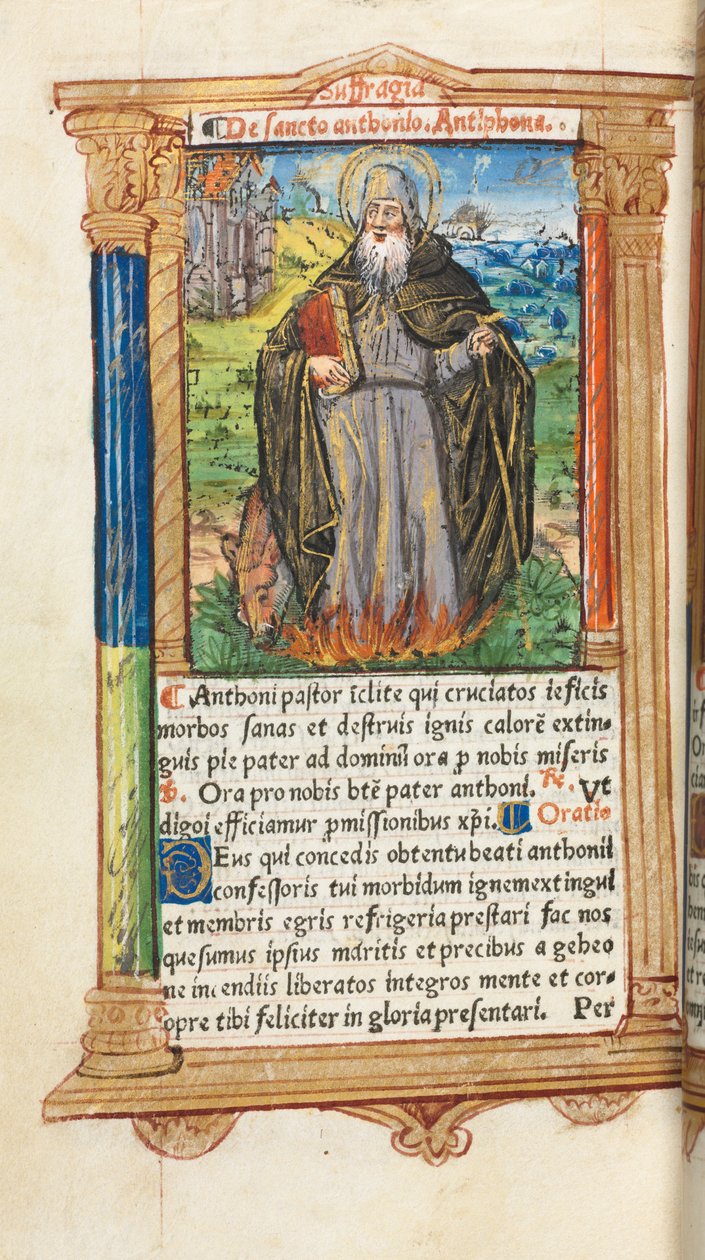 Suffragia
De sancto anthonio. Antiphona.
Anthoni pastor īclite qui cruciatos īeficis
morbos sanas et destruis ignis calorē extin-
guis pie pater ad dominū ora ꝓ nobis miseris
℣. Ora pro nobis btē pater anthoni. ℟. Vt
digōi efficiamur ꝓmissionibus xp̄i. Oratio
DEus qui concedis obtentu beati anthonii
confessoris tui morbidum ignem extingui
et membris egris refrigeria prestari fac nos
quesumus ipsius mdritis et precibus a gehēo
ne incendiis liberatos integros mente et cor-
opre tibi feliciter in gloria presentari. Per